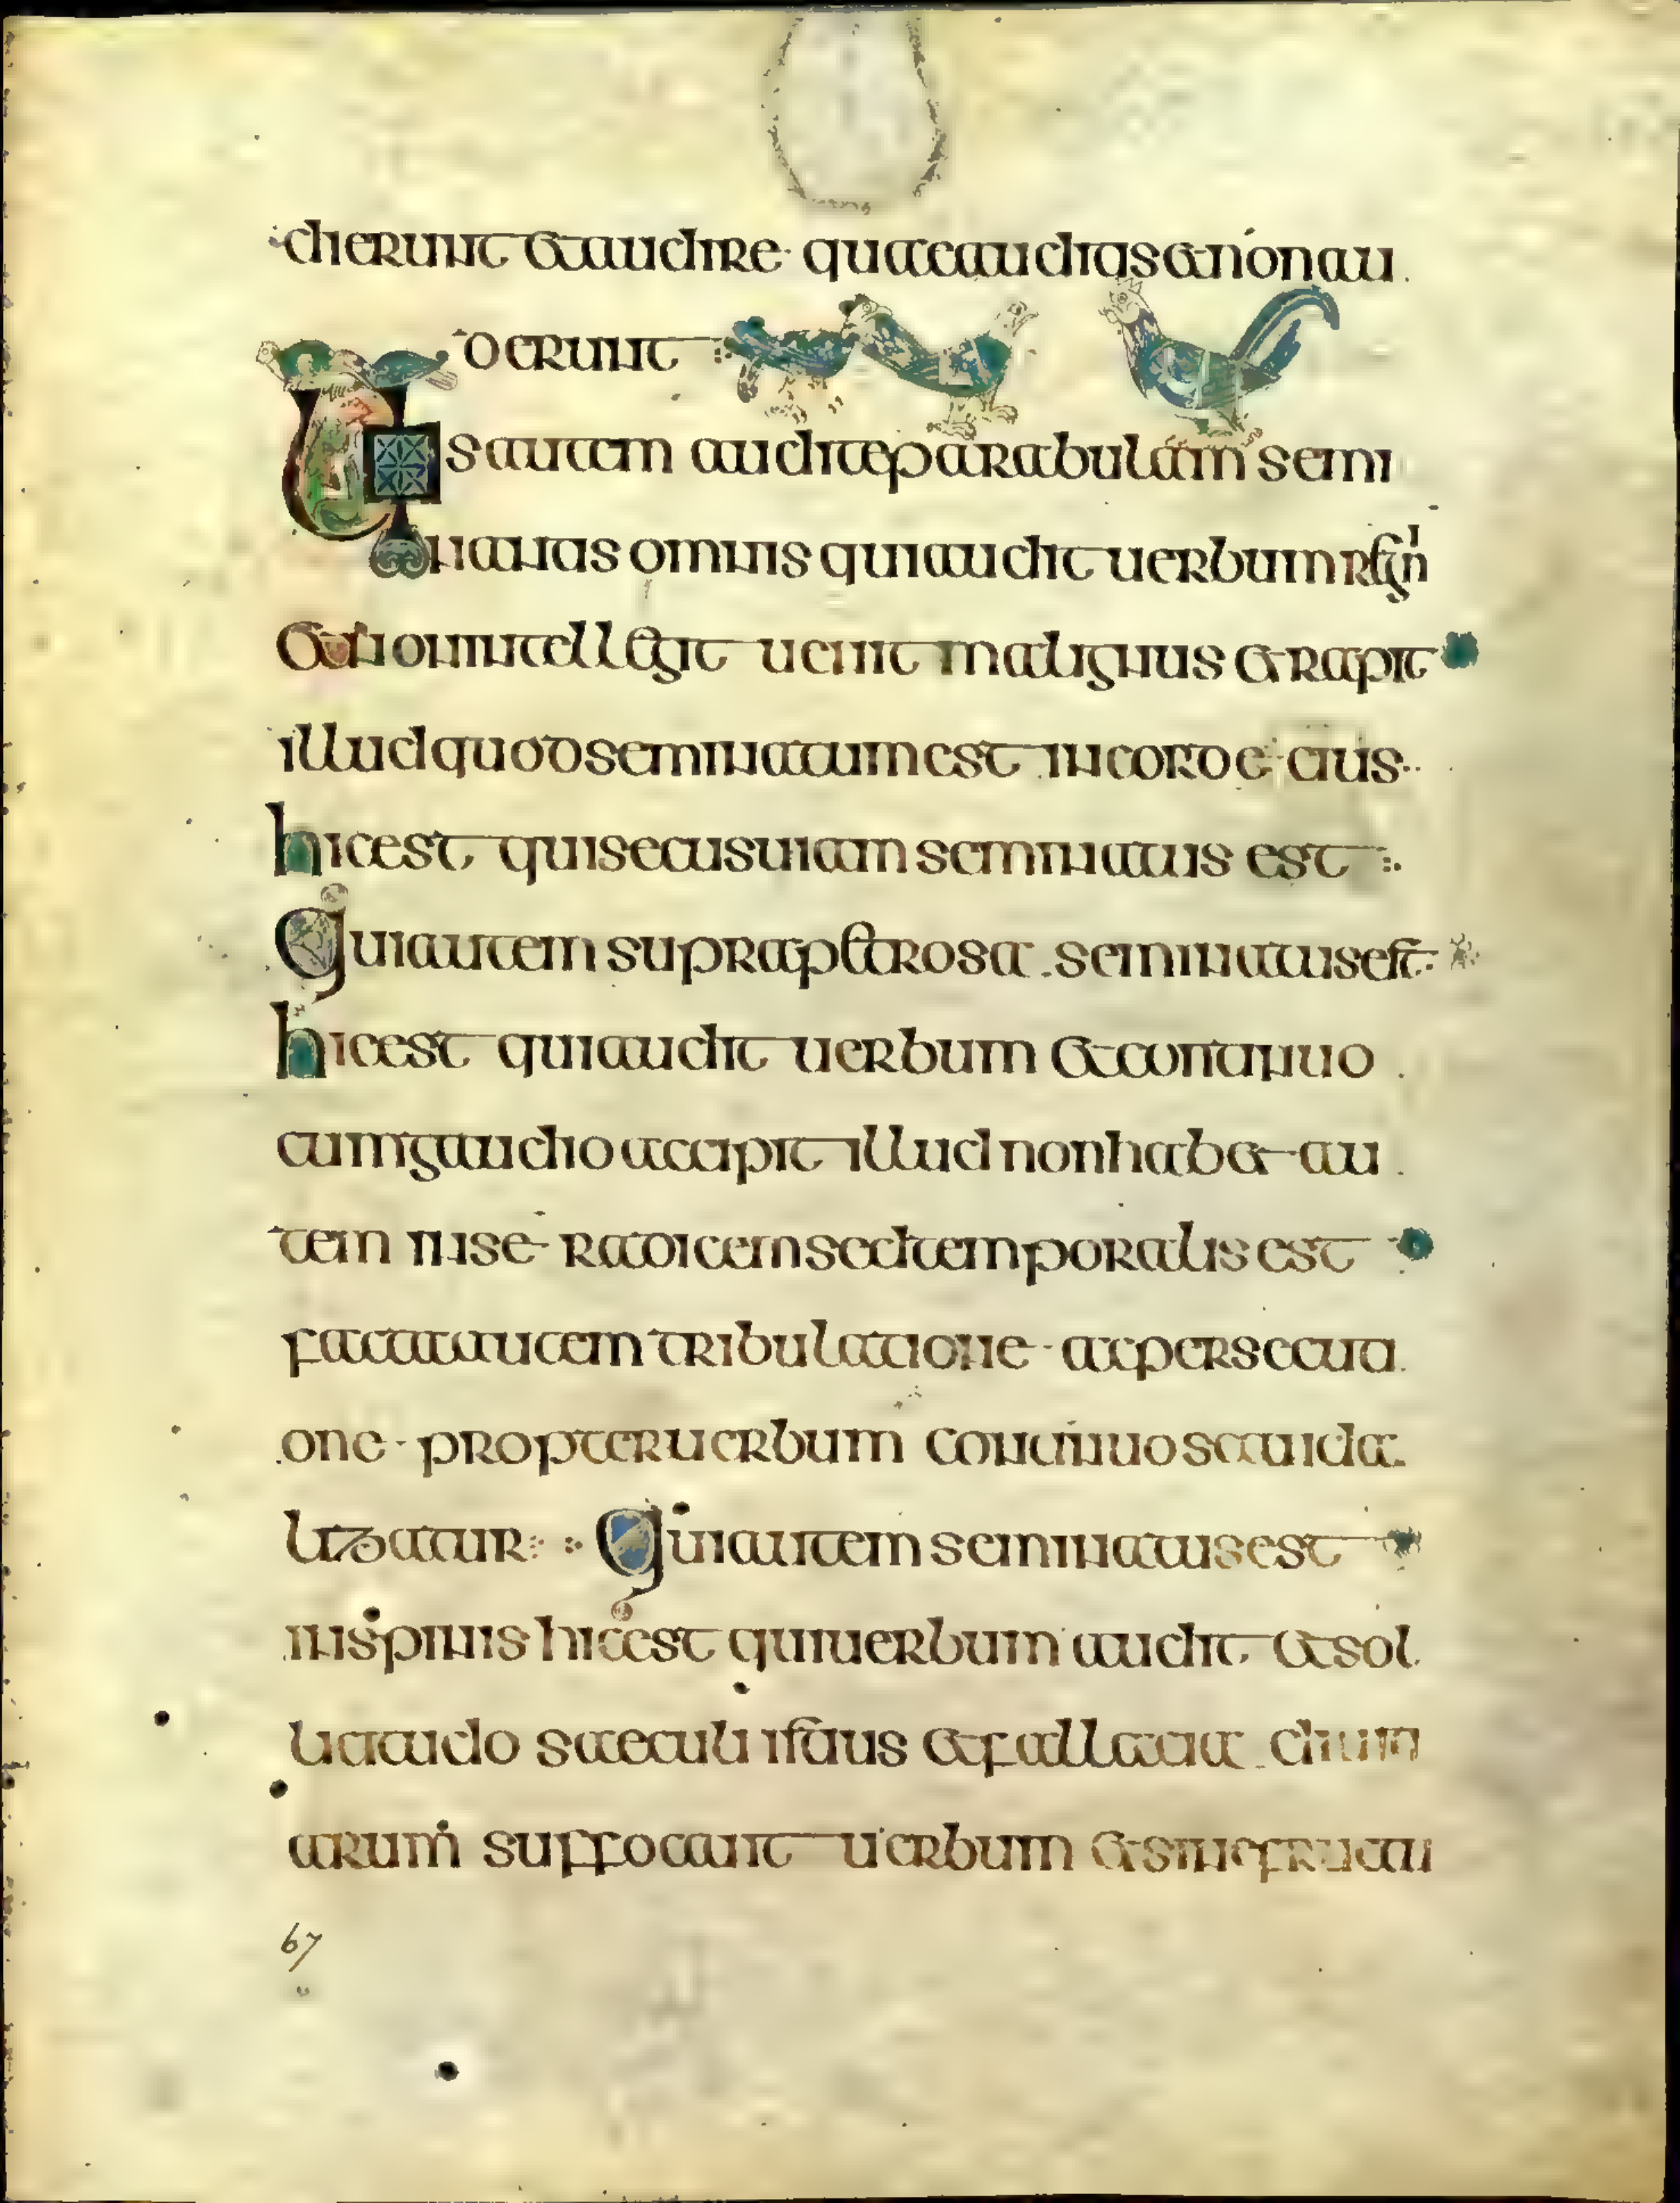 dierunt et audire quae auditis et non au
dierunt
Uos autem audite parabulam semi
nantis omnis qui audit uerbum regn
et non intellegit uenit malignus et rapit
illud quod seminatum est in corde eius
hic est qui secus uiam seminatus est
Qui autem supra petrosa seminatus est
hic est qui audit uerbum et continuo
cum gaudio accipit illud non habet au
tem in se radicem sed temporalis est
facta autem tribulatione et persecuti
one propter uerbum continuo scanda
lizatur Qui autem seminatus est
in spinis hic est qui uerbum audit et sol
licitudo saeculi istius et fallacia diuiti
arum suffocant uerbum et sine fructu
67